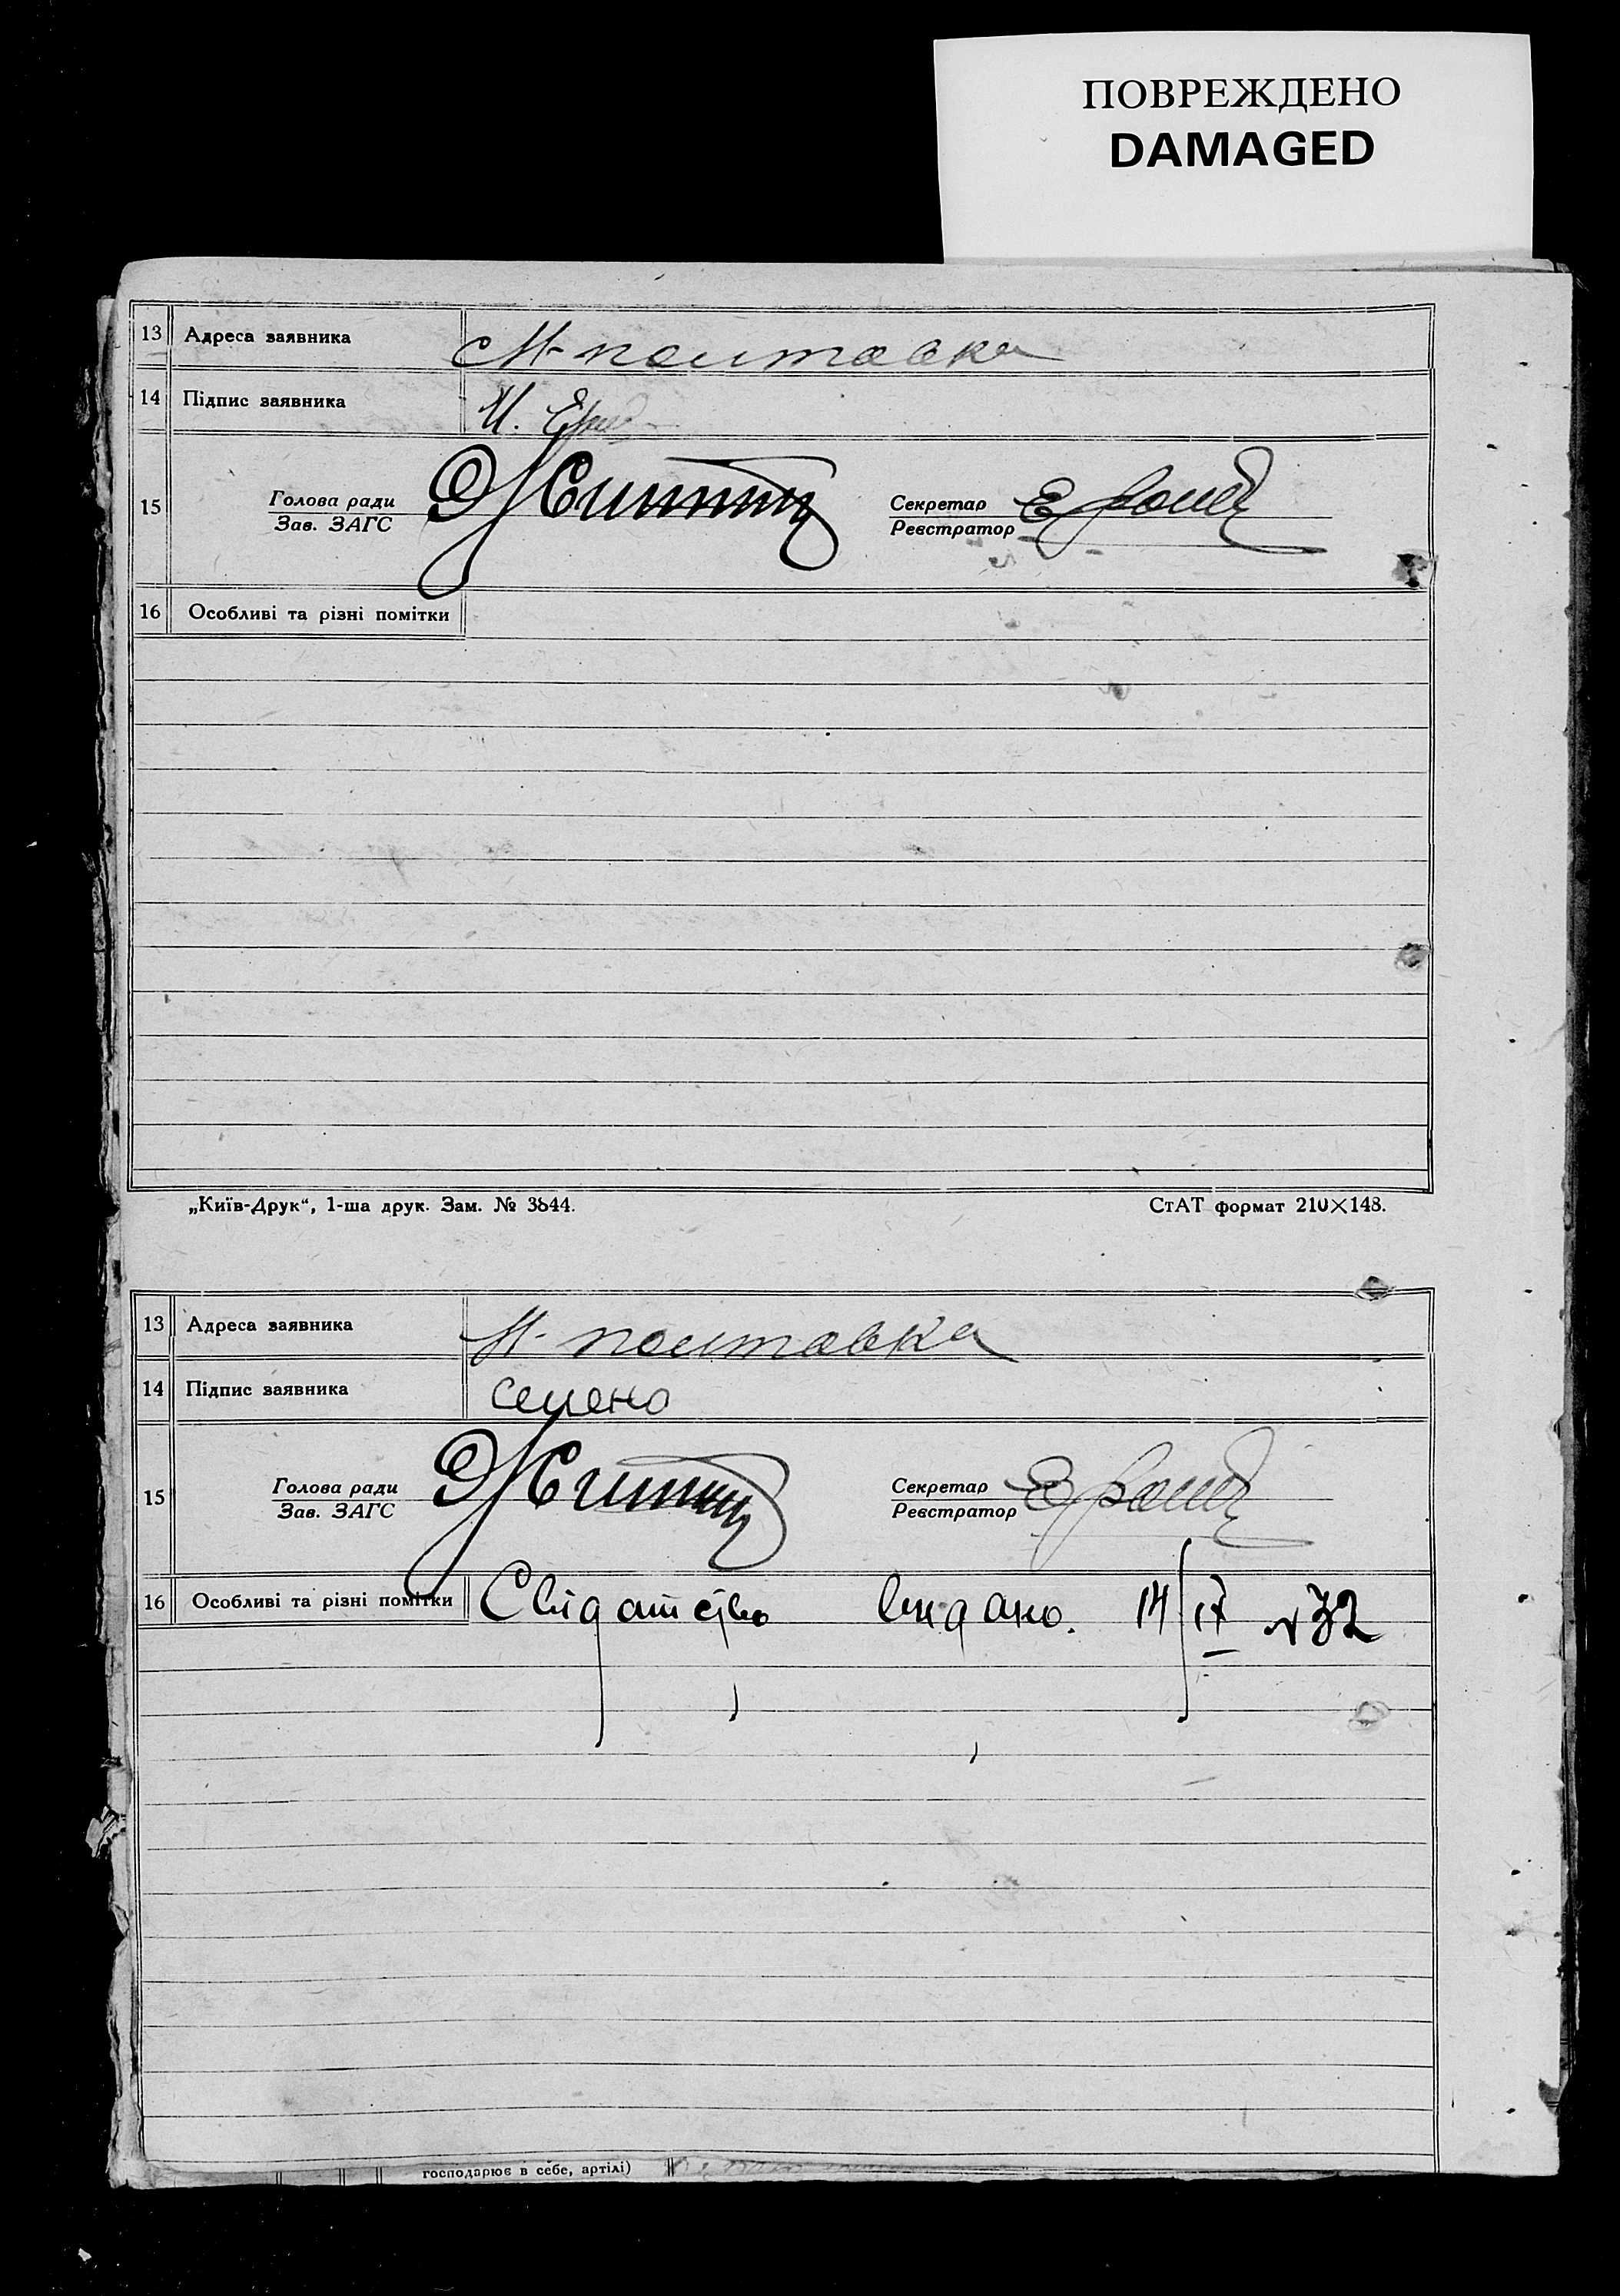 ПОВРЕЖДЕНО
DAMAGED
13 Адреса заявника М-полтавка
14 Підпис заявника И.
15 Голова ради Секретар
Зав. ЗАГС Реєстратор
16 Особливі та різні помітки
„Київ-Друк“, 1-ша друк. Зам. № 3844. СтАТ формат 210×148.
13 Адреса заявника М-полтавка
14 Підпис заявника
15 Голова ради Секретар
Зав. ЗАГС Реєстратор
16 Особливі та різні помітки Свідатство видано. №32
господарює в себе, артілі)